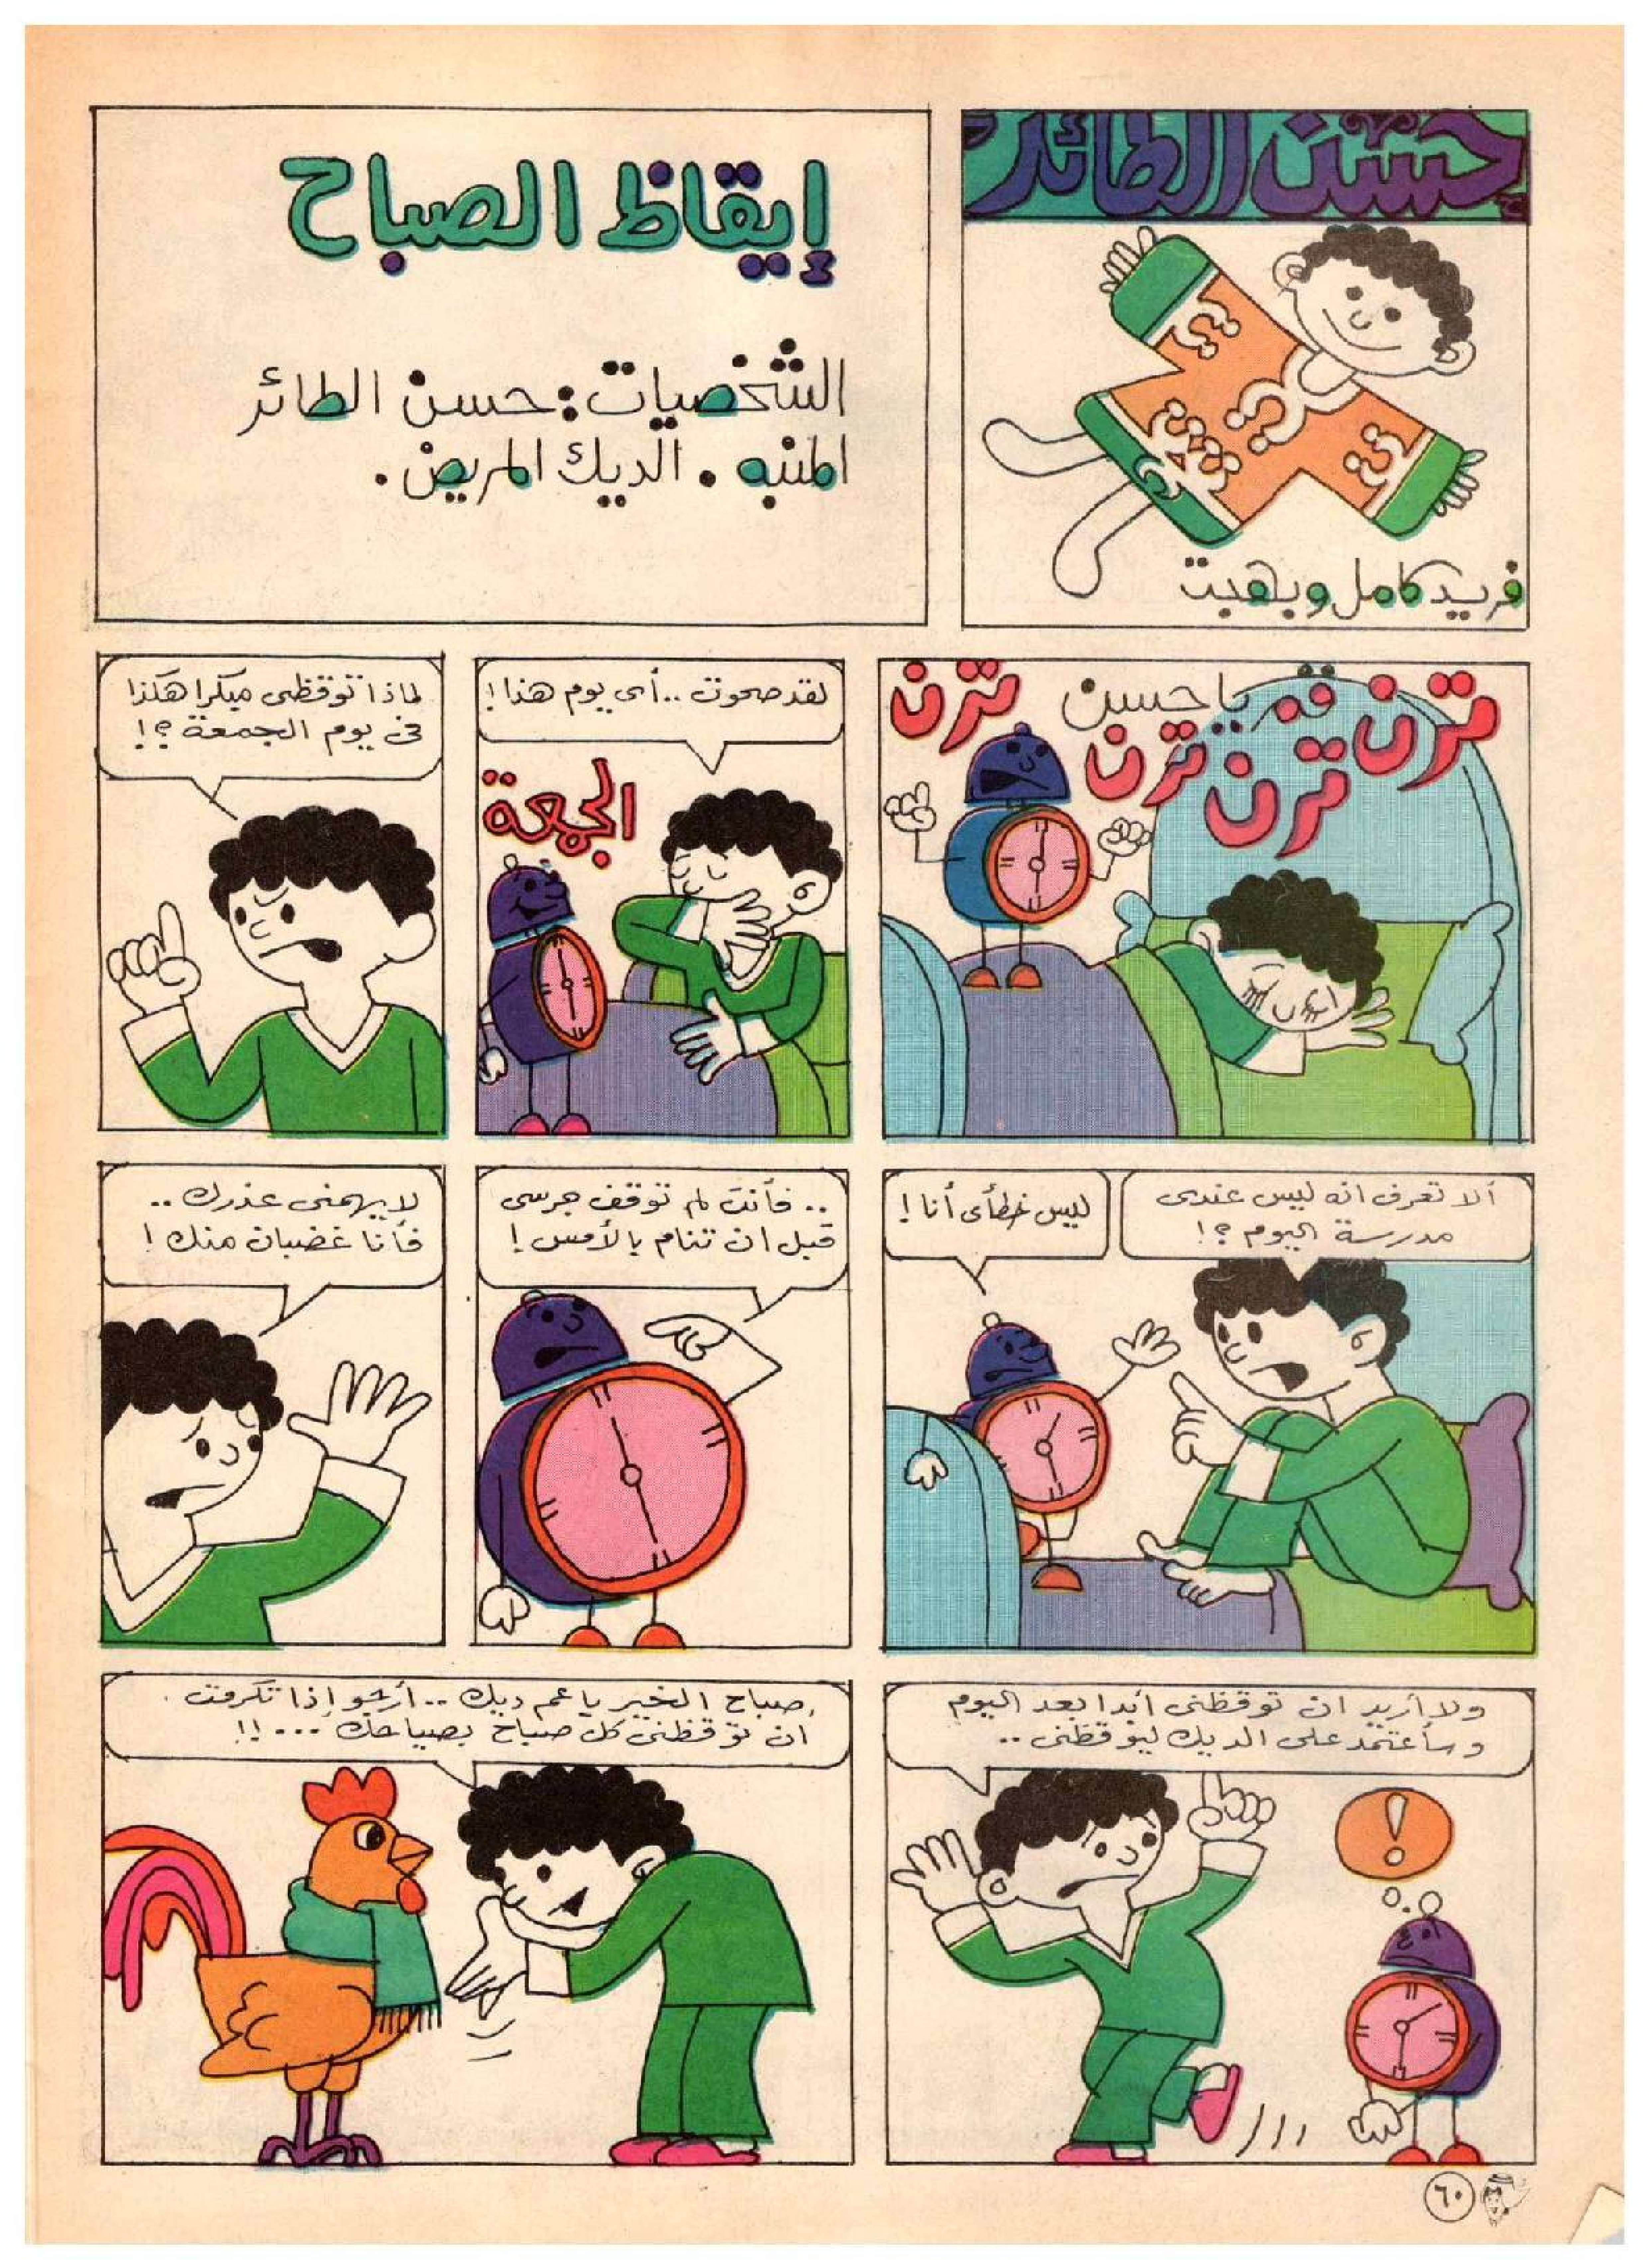 حسن الطائر
فريد كامل وبهجت
إيقاظ الصباح
الشخصيات : حسن الطائر
المنبه . الديك المريض .
ترن
ترن
ترن
ترن
قم يا حسن
لقد صحوت .. أى يوم هذا !
الجمعة
لماذا توقظنى مبكرا هكذا
فى يوم الجمعة ؟!
ألا تعرف انه ليس عندى
مدرسة اليوم ؟!
ليس خطأى أنا !
.. فأنت لم توقف جرسى
قبل ان تنام بالأمس !
لا يهمنى عذرك ..
فأنا غضبان منك !
ولا أريد ان توقظنى أبدا بعد اليوم
وسأعتمد على الديك ليوقظنى ..
!
صباح الخير يا عم ديك .. أرجو إذا تكرمت
ان توقظنى كل صباح بصياحك ... !!
٦٠